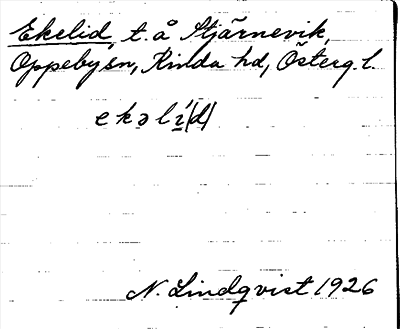 Ekelid, t. å Stjärnevik,
Oppeby sn, Kinda hd, Österg. l.
e k ə l í̱(d)
N. Lindqvist 1926